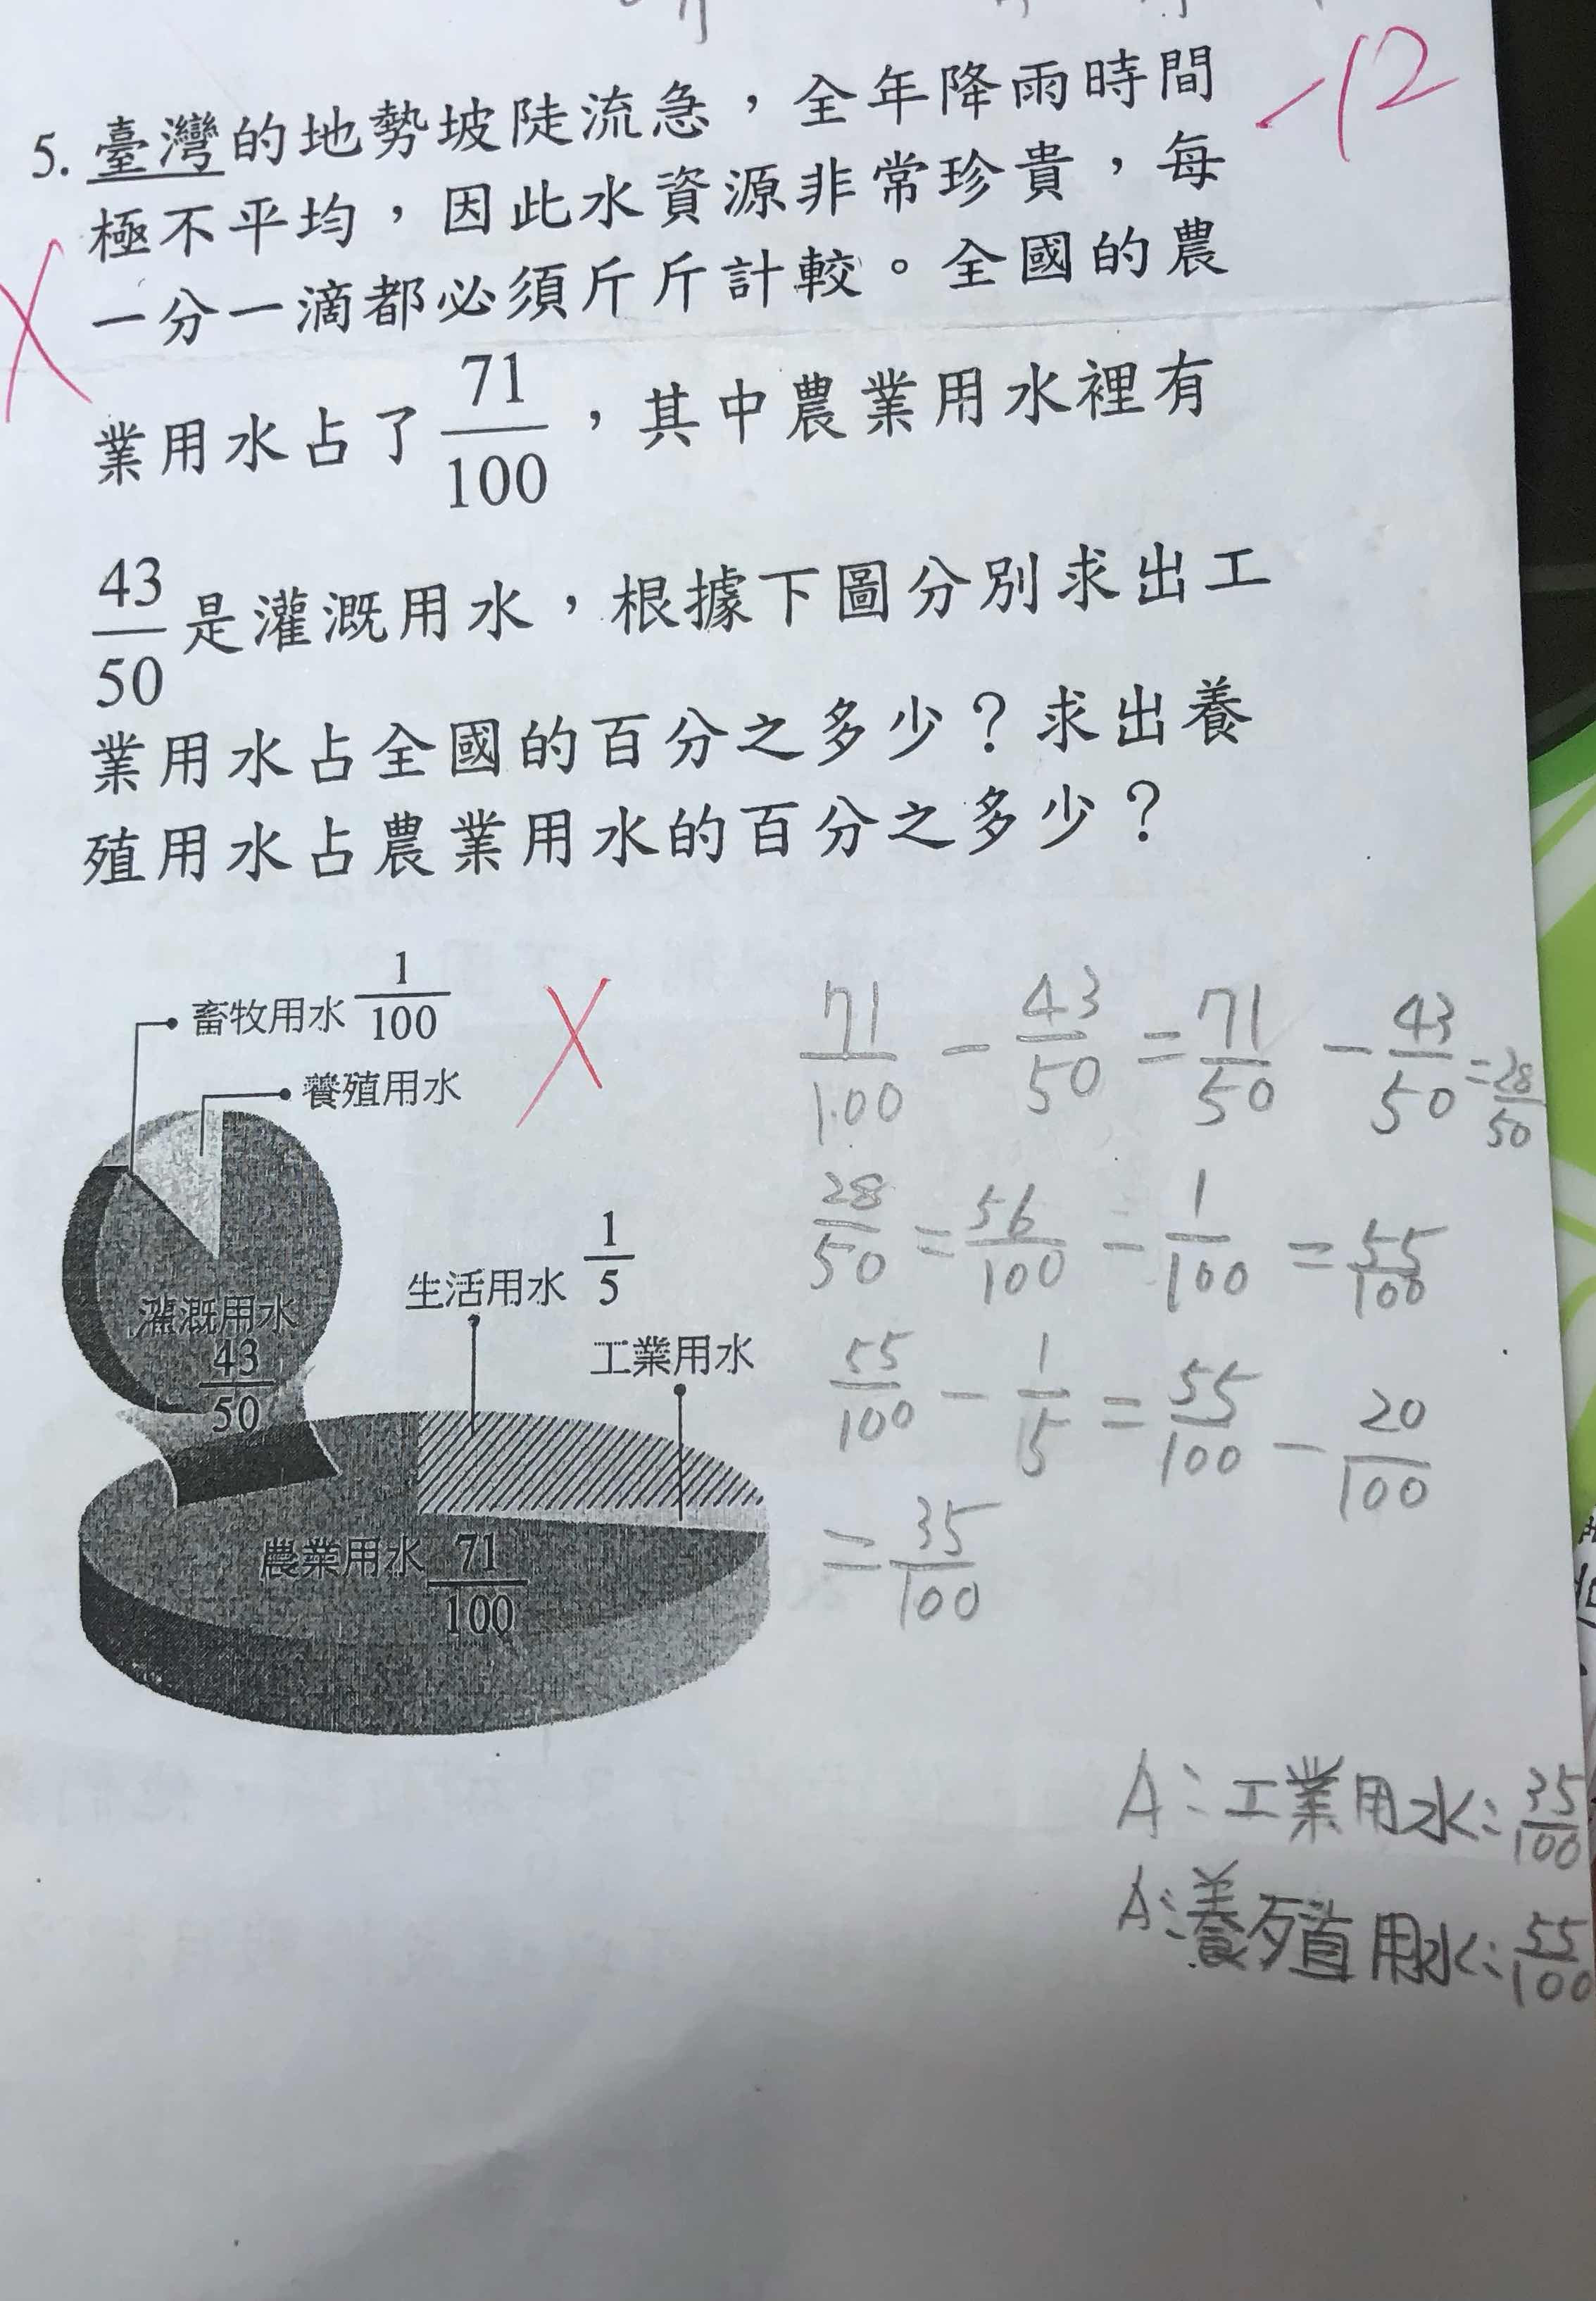 -12
5. 臺灣的地勢坡陡流急，全年降雨時間
極不平均，因此水資源非常珍貴，每
一分一滴都必須斤斤計較。全國的農
業用水占了 71/100，其中農業用水裡有
43/50 是灌溉用水，根據下圖分別求出工
業用水占全國的百分之多少？求出養
殖用水占農業用水的百分之多少？
畜牧用水 1/100
養殖用水
灌溉用水 43/50
生活用水 1/5
工業用水
農業用水 71/100
71/100 - 43/50 = 71/50 - 43/50 = 28/50
28/50 = 56/100 - 1/100 = 55/100
55/100 - 1/5 = 55/100 - 20/100
= 35/100
A：工業用水：35/100
A：養殖用水：55/100